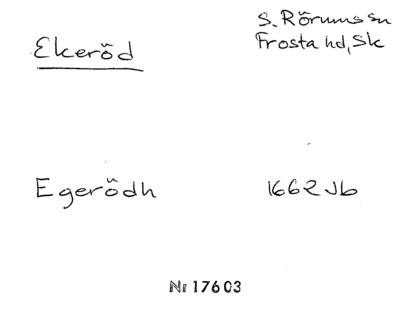 Ekeröd
S. Rörums sn
Frosta hd, Sk
Egerödh
1662 Jb
Nr 17603